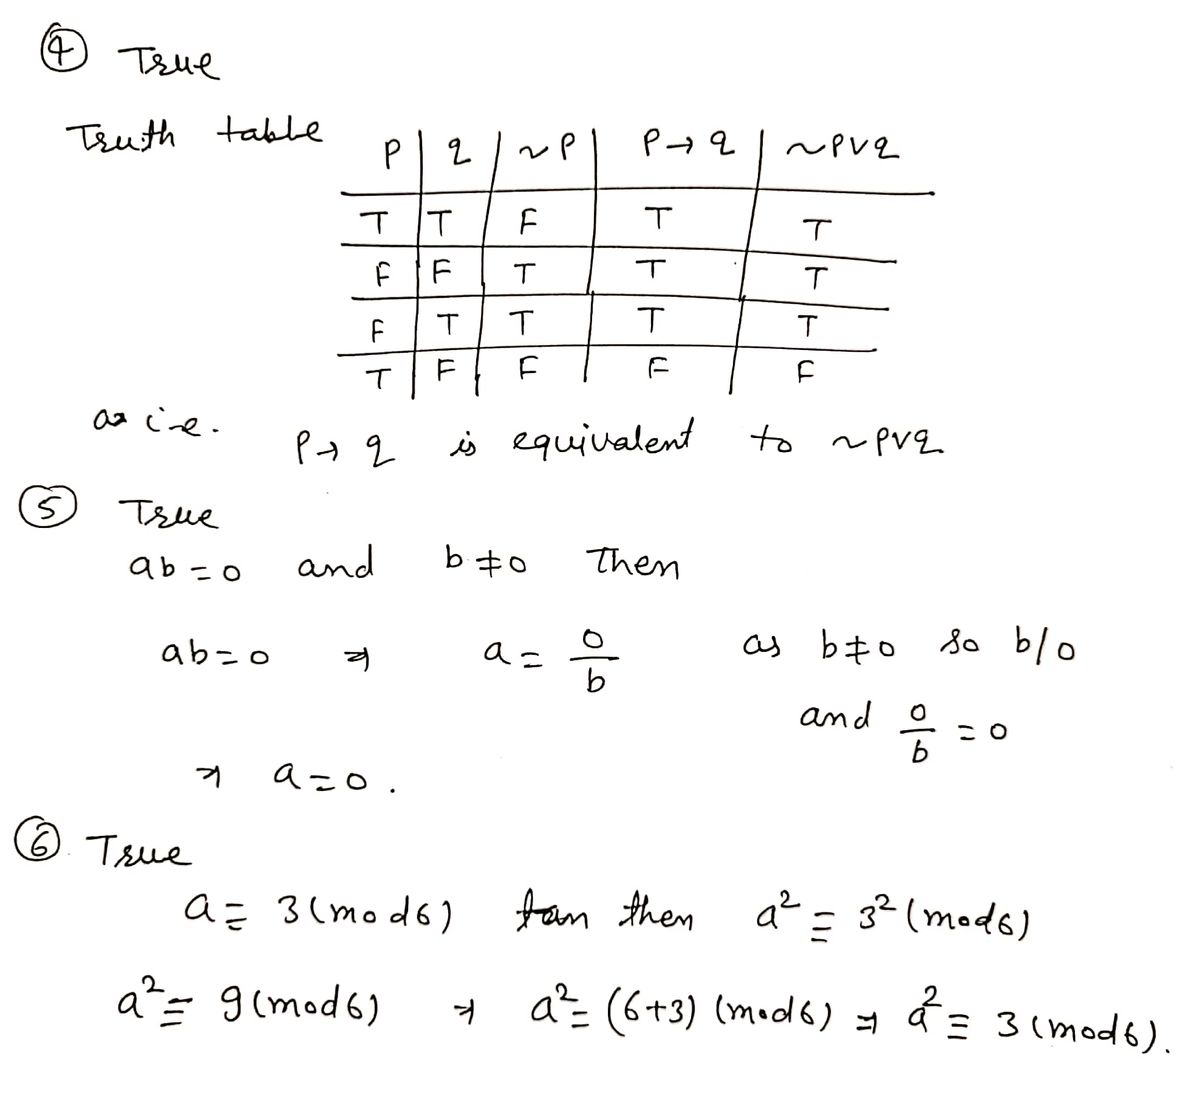 ④ True
Truth table
P | q | ~P | P → q | ~P∨q
T | T | F | T | T
F | F | T | T | T
F | T | T | T | T
T | F | F | F | F
as i.e. P → q is equivalent to ~P∨q
⑤ True
ab = 0 and b ≠ 0 Then
ab = 0 ⇒ a = 0/b as b ≠ 0 so b/0
and 0/b = 0
⇒ a = 0.
⑥ True
a ≡ 3 (mod 6) then a² ≡ 3² (mod 6)
a² ≡ 9 (mod 6) ⇒ a² ≡ (6+3) (mod 6) ⇒ a² ≡ 3 (mod 6).